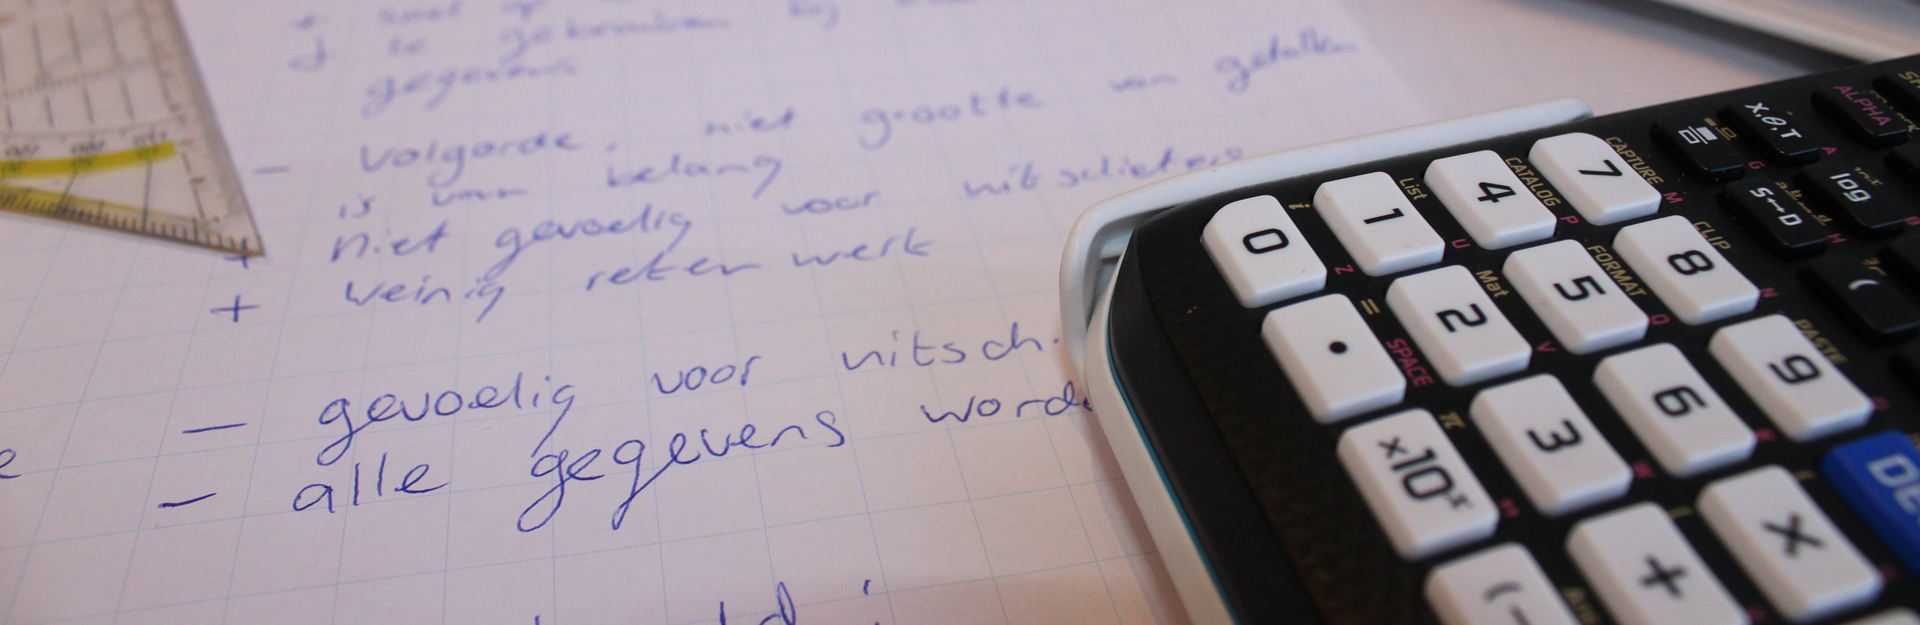 + snel
te gebruiken bij
gegevens
- volgorde, niet grootte van getallen
is van belang
+ niet gevoelig voor uitschieters
+ weinig rekenwerk
- gevoelig voor uitsch.
- alle gegevens word
e
CAPTURE
7
M
CATALOG
4
P
List
1
U
i
0
Z
X,θ,T
A
ALPHA
G
S↔D
H
log
B
CLIP
8
N
FORMAT
5
Q
Mat
2
V
=
.
SPACE
(
PASTE
9
6
3
π
×10ˣ
DE
×
+
(-